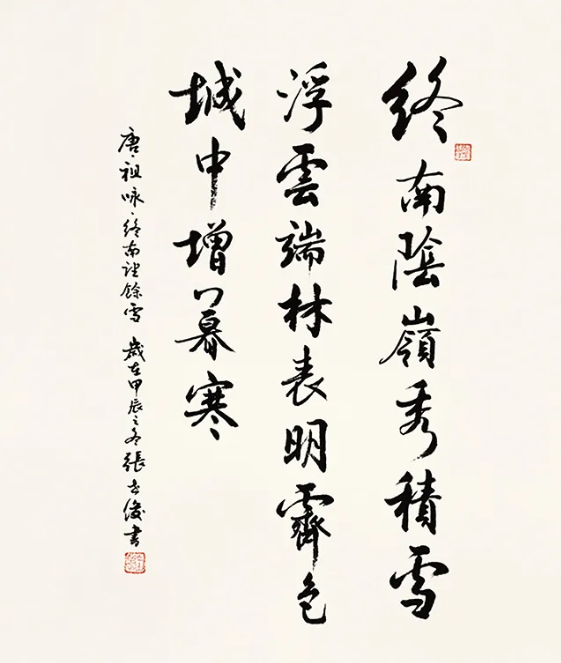 終南陰嶺秀積雪
浮雲端林表明霽色
城申增暮寒
唐·祖咏·終南望餘雪 歲在甲辰之冬張俊書